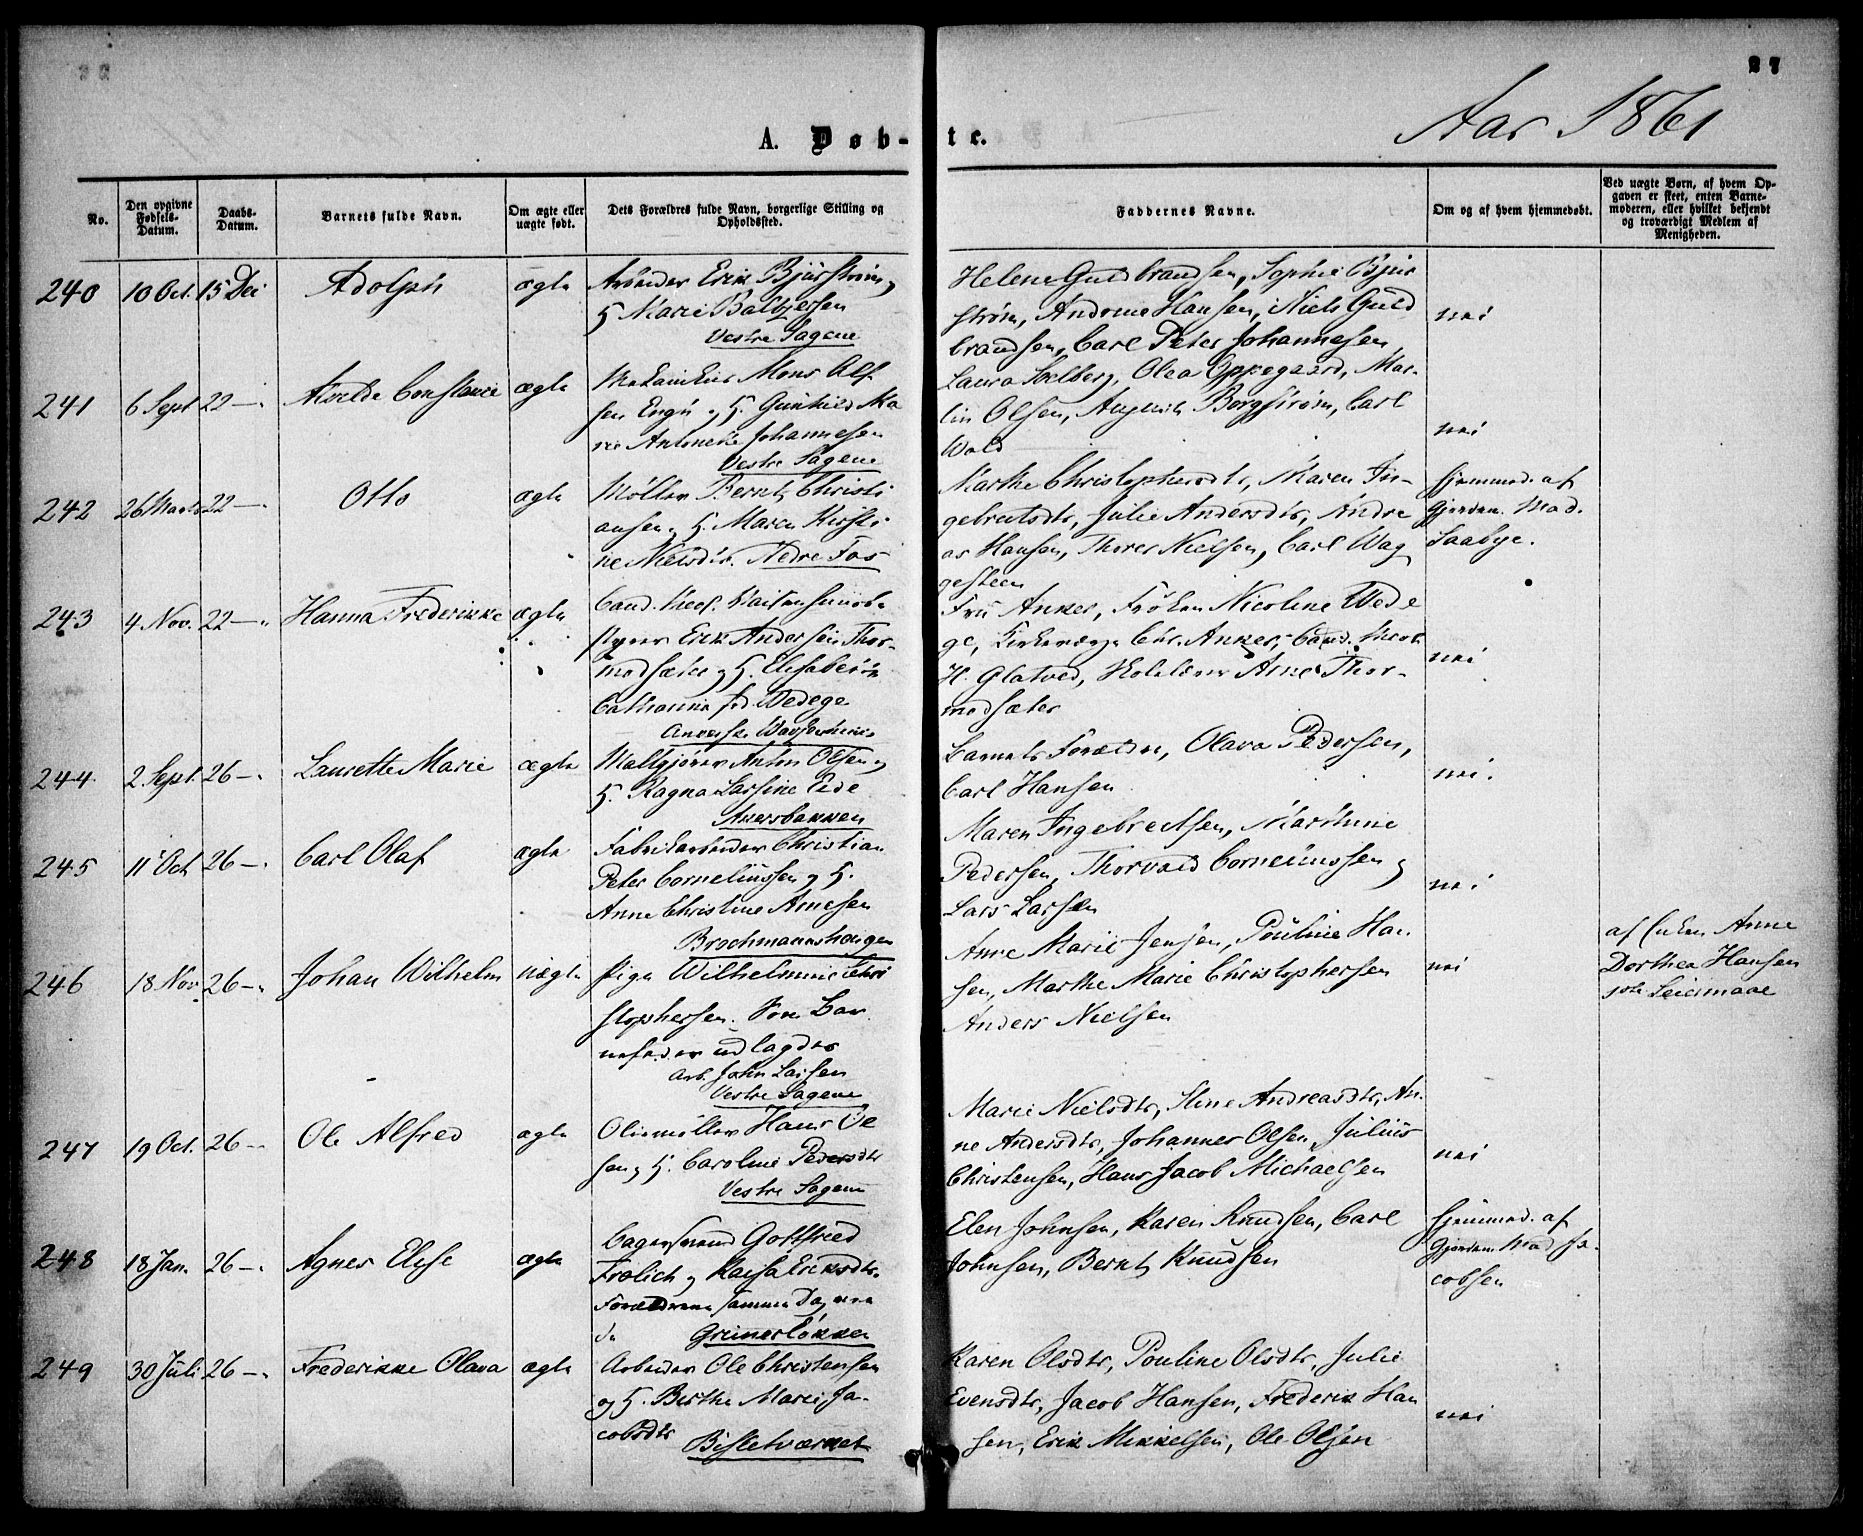 27
Aar 1861
A. Døb-te.
No.
Den opgivne Fødsels-Datum.
Daabs-Datum.
Barnets fulde Navn.
Om ægte eller uægte født.
Dets Forældres fulde Navn, borgerlige Stilling og Opholdssted.
Faddernes Navne.
Om og af hvem hjemmedøbt.
Ved uægte Børn, af hvem Opgaven er skeet, enten Barnemoderen, eller hvilket bekjendt og troværdigt Medlem af Menigheden.
240 10 Oct. 15 Dec Adolph ægte
Arbeider Erik Bjurstrøm,
H. Marie Baltzersen
Vestre Sagene
Helene Guldbrandsen, Sophie Bjur
strøm, Andrine Hansen, Niels Guld
brandsen, Carl Peter Johannesen
nei
241 6 Sept 22 —. Alvilde Constance ægte
Mons Ol
sen Engh og H. Gunhild Ma
rie Antonette Johannesen
Vestre Sagene
Laura Solberg, Olea Oppegaard, Mar-
lin Olsen, Borgstrøm, Carl
Wold
nei
242 26 Marts 22 —. Otto ægte
Møller Bernt Christi
ansen, H. Maren Kirsti
ne Nielsdtr. Nedre Fos
Marthe Christophersdtr, Maren In-
gebretsdtr, Julie Andersdtr, Andre
as Hansen, Thores Nielsen, Carl Wag
gesteen
Hjemmed. af
Gjordem. Mad.
Saabye.
243 4 Nov. 22 —. Hanna Frederikke ægte
Cand. theol.
styrer Erik Andersen Thor-
modsæter og H. Elisabeth
Cathamine fød. Wedege
Ankerske Waisenhuus
Fru Anker, Frøken Nicoline Wede
ge, Chr. Anker, Cand. theol.
H. Glatved, Arne Thor-
modsæter
nei
244 2 Sept. 26 —. Laurette Marie ægte
Maltgjører Anton Olsen og
H. Ragna Larsine Eide
Akersbakken
Barnets Forældre, Olava Pedersen,
Carl Hansen
nei.
245 11 Oct 26 —. Carl Olaf ægte
Fabrikarbeider Christian
Peter Corneliussen og H.
Anne Christine Arnesen
Brochmannshougen
Maren Ingebretsen, Marthine
Pedersen, Thorvald Corneliussen,
Lars Larsen
nei
246 18 Nov. 26 —. Johan Wilhelm uægte
Pige Wilhelmine Chri
stophersen. Som Bar
nefader udlagdes
Arb. John Larsen
Vestre Sagene
Anne Marie Jensen, Pouline Han
sen, Marthe Marie Christophersen
Anders Nielsen
nei
af Enken Anne
Dorthea Hansen
1ste Leiermaal
247 19 Oct. 26 — Ole Alfred ægte
Oliemøller Hans Ol
sen, H. Caroline Pedersdtr
Vestre Sagene
Marie Nielsdtr, Stine Andreasdtr, An-
ne Andersdtr, Johannes Olsen, Julius
Christensen, Hans Jacob Michaelsen
nei
248 18 Jan. 26 —. Agnes Elise ægte
Bagersvend Gottfried
Frølich og Kaisa Eriksdtr.
Forældrene samme Dag viede
Grünerløkken
Elen Johnsen, Karen Knudsen, Carl
Johnsen, Bernt Knudsen
Hjemmed. af
Gjordem. Mad Ja-
cobsen
249 30 Juli 26 —. Frederikke Olava ægte
Arbeider Ole Christensen
og H. Berthe Marie Ja-
cobsdtr
Bisletværket
Karen Olsdtr, Pouline Olsdtr, Julie
Evensdtr, Jacob Hansen, Frederik Han
sen, Erik Mikkelsen, Ole Olsen
nei